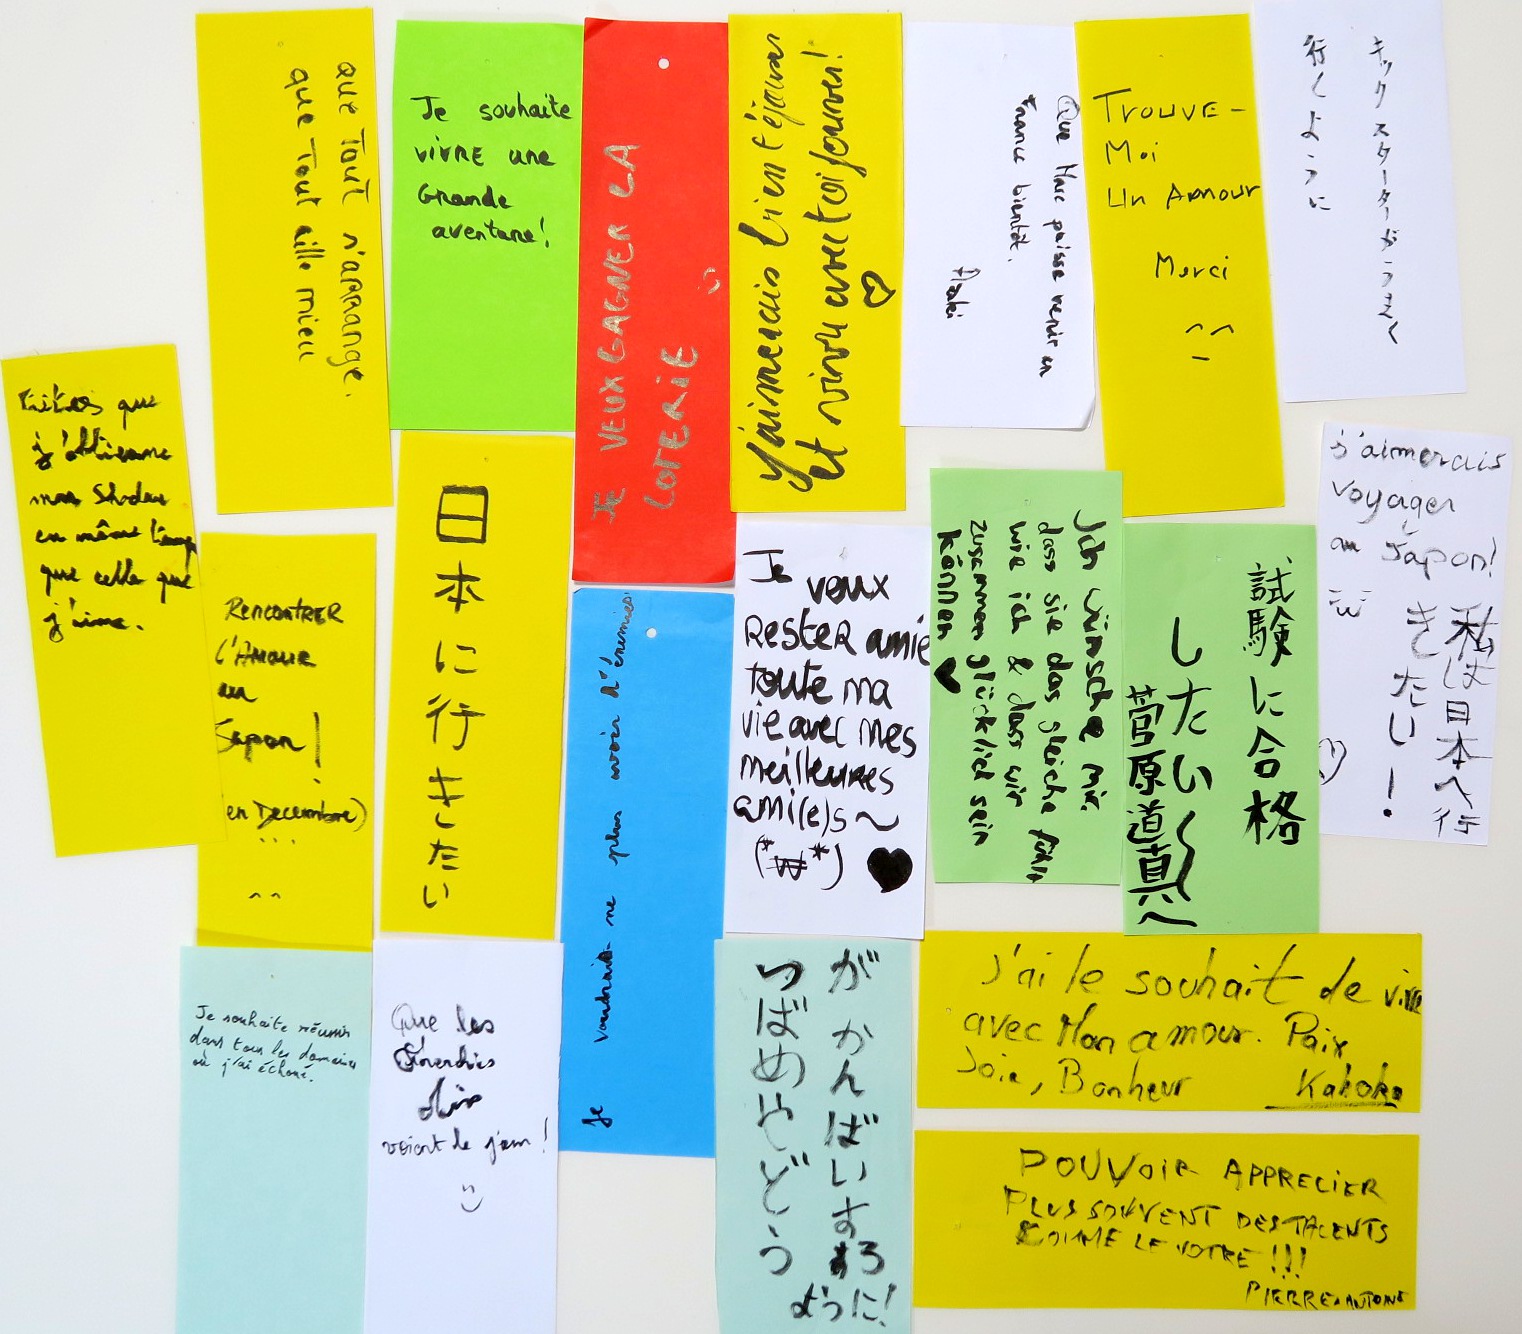 que Tout s'arrange.
que Tout aille mieu
Je souhaite
vivre une
Grande
aventure!
JE VEUX GAGNER LA
LOTERIE
J'aimerais bien t'épouser
et vivre avec toi
Que Marc puisse venir en
France bientôt.
TROUVE-
Moi
Un Amour
Merci
キックスターターがうまく
行くように
Faites que
j'obtienne
mon
en même temps
que celle que
j'aime.
RENCONTRER
l'Amour
au
Japon !
(en Decembre)
日本に行きたい
Je voudrais ne plus avoir d'ennemis
Je veux
RESTER amie
toute ma
vie avec mes
meilleures
ami(e)s~
(*w*) ♥
Ich wünsche mir
dass sie das gleiche fühlt
wie ich & dass wir
zusammen glücklich sein
können ♥
試験に合格
したい
菅原道真へ
j'aimerais
voyager
au Japon!
私は日本へ行
きたい!
Je souhaite réussir
dans tous les domaines
où j'ai échoué.
Que les
voient le jour!
J'ai le souhait de vivre
avec Mon amour. Paix,
Joie, Bonheur
POUVOIR APPRECIER
PLUS SOUVENT DES TALENTS
COMME LE VOTRE !!!
PIERRE-ANTOINE